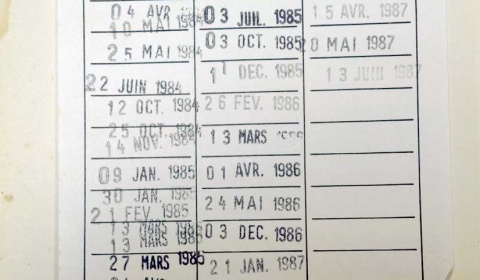 04 AVR. 1984
10 MAI 1984
25 MAI 1984
22 JUIN 1984
12 OCT. 1984
25 OCT. 1984
14 NOV. 1984
09 JAN. 1985
30 JAN. 1985
21 FEV. 1985
13 MARS 1985
13 MARS 1985
27 MARS 1985
03 JUIL. 1985
03 OCT. 1985
11 DEC. 1985
26 FEV. 1986
13 MARS
01 AVR. 1986
24 MAI 1986
03 DEC. 1986
21 JAN. 1987
15 AVR. 1987
20 MAI 1987
13 JUIN 1987